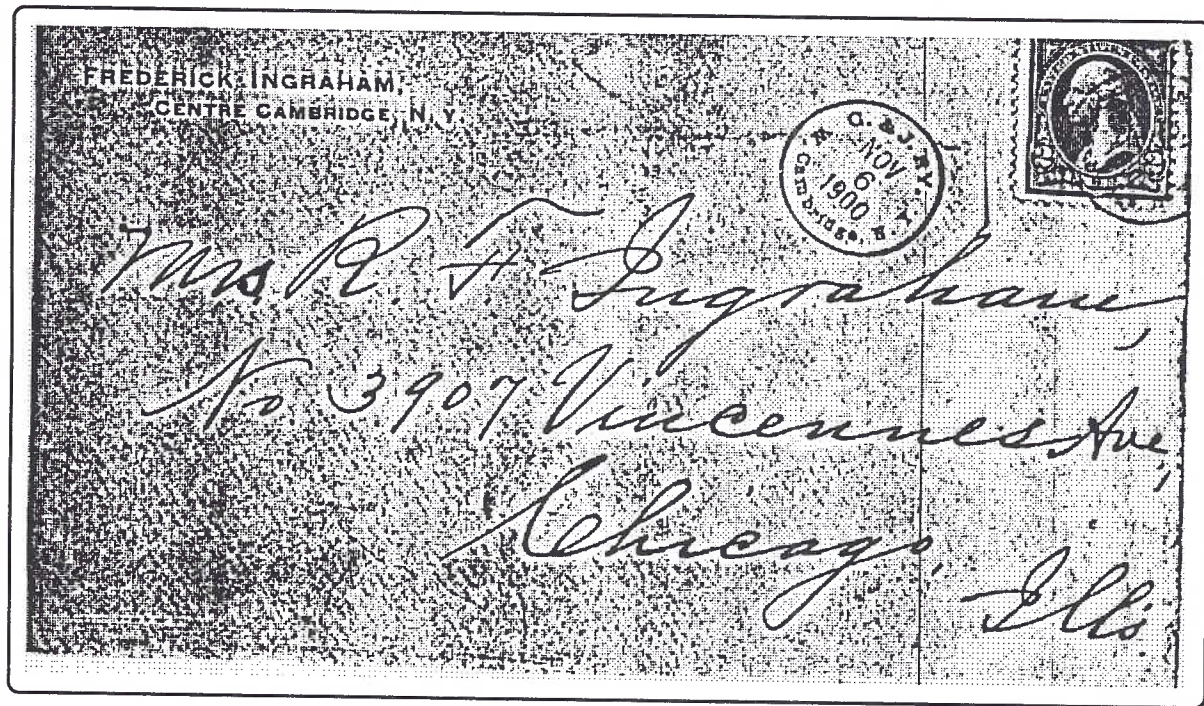 FREDERICK INGRAHAM,
CENTRE CAMBRIDGE, N. Y.
G. & J. RY.
NOV
6
1900
Cambridge, N. Y.
Mrs. R F Ingraham,
No 3907 Vincennes Ave,
Chicago,
Ills